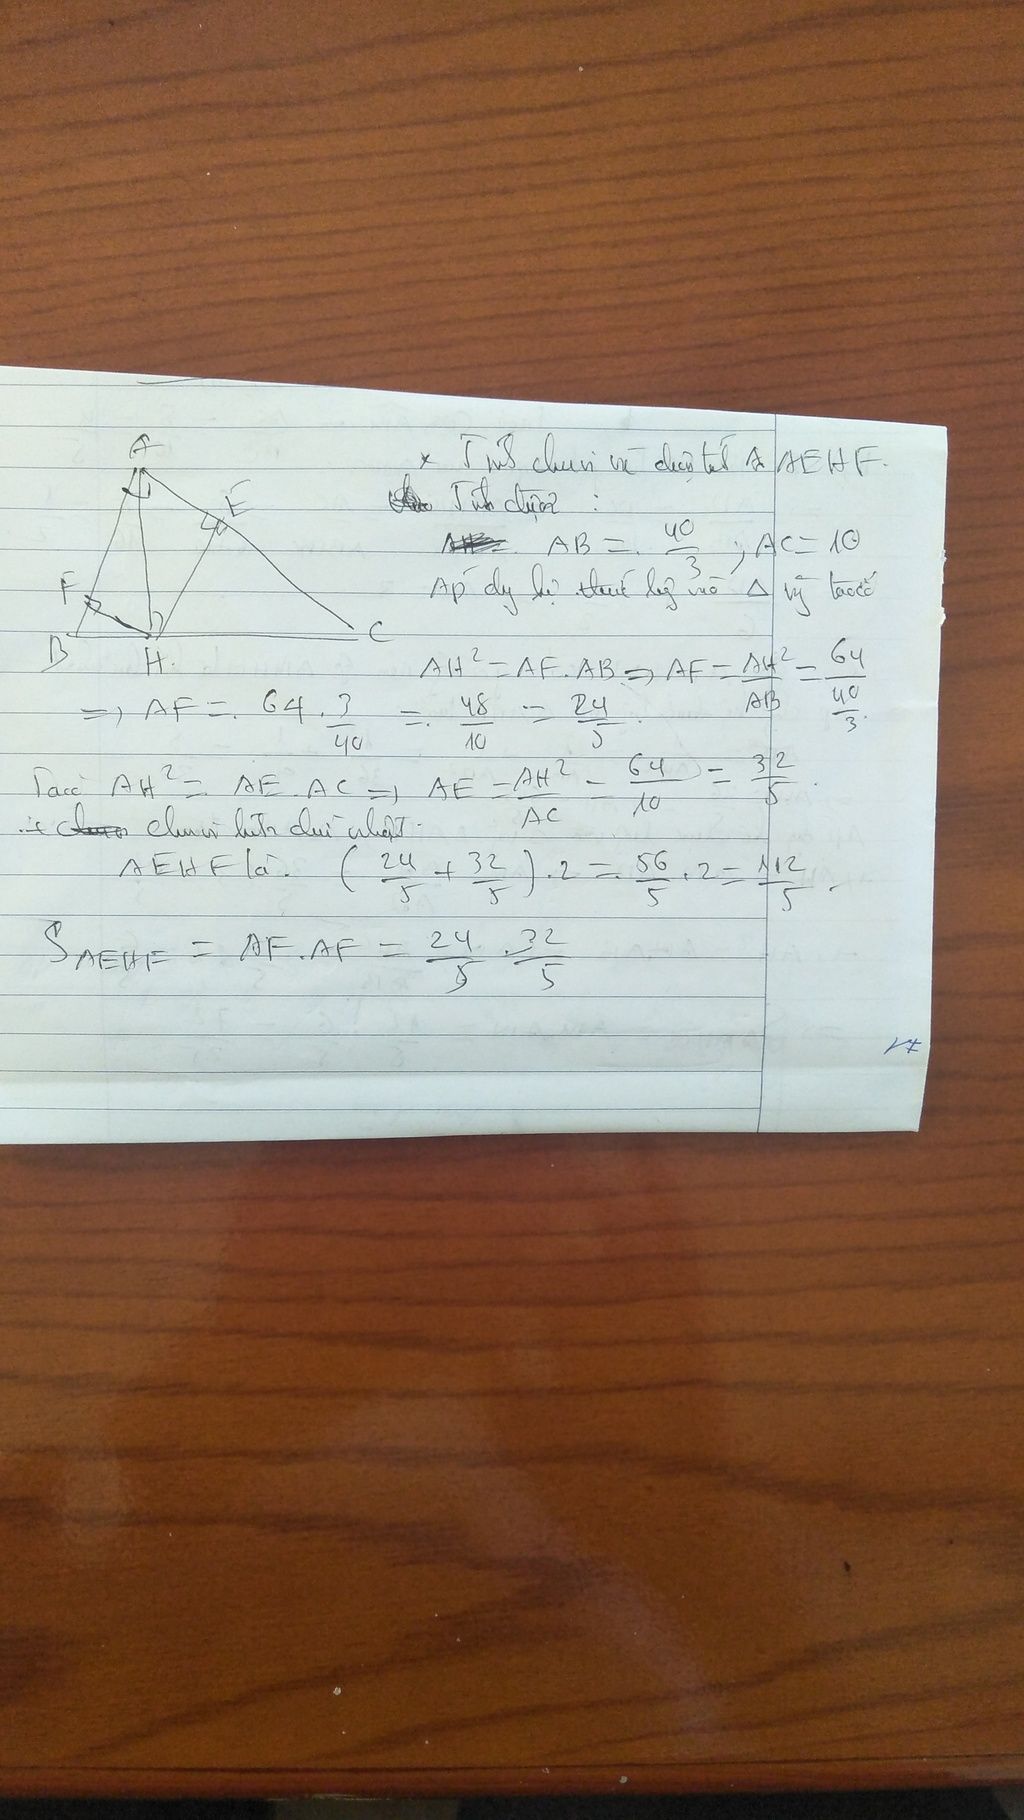 A
E
F
B
H.
C
* Tính chu vi và diện tích AEHF.
Tính được :
AB = 40/3 ; AC = 10
Áp dụng hệ thức lượng vào Δ vg ta có
AH² = AF.AB => AF = AH²/AB = 64/(40/3)
=> AF = 64 . 3/40 = 48/10 = 24/5.
Ta có AH² = AE.AC => AE = AH²/AC = 64/10 = 32/5.
chu vi hình chữ nhật
AEHF là. (24/5 + 32/5).2 = 56/5 . 2 = 112/5.
S AEHF = AF.AF = 24/5 . 32/5